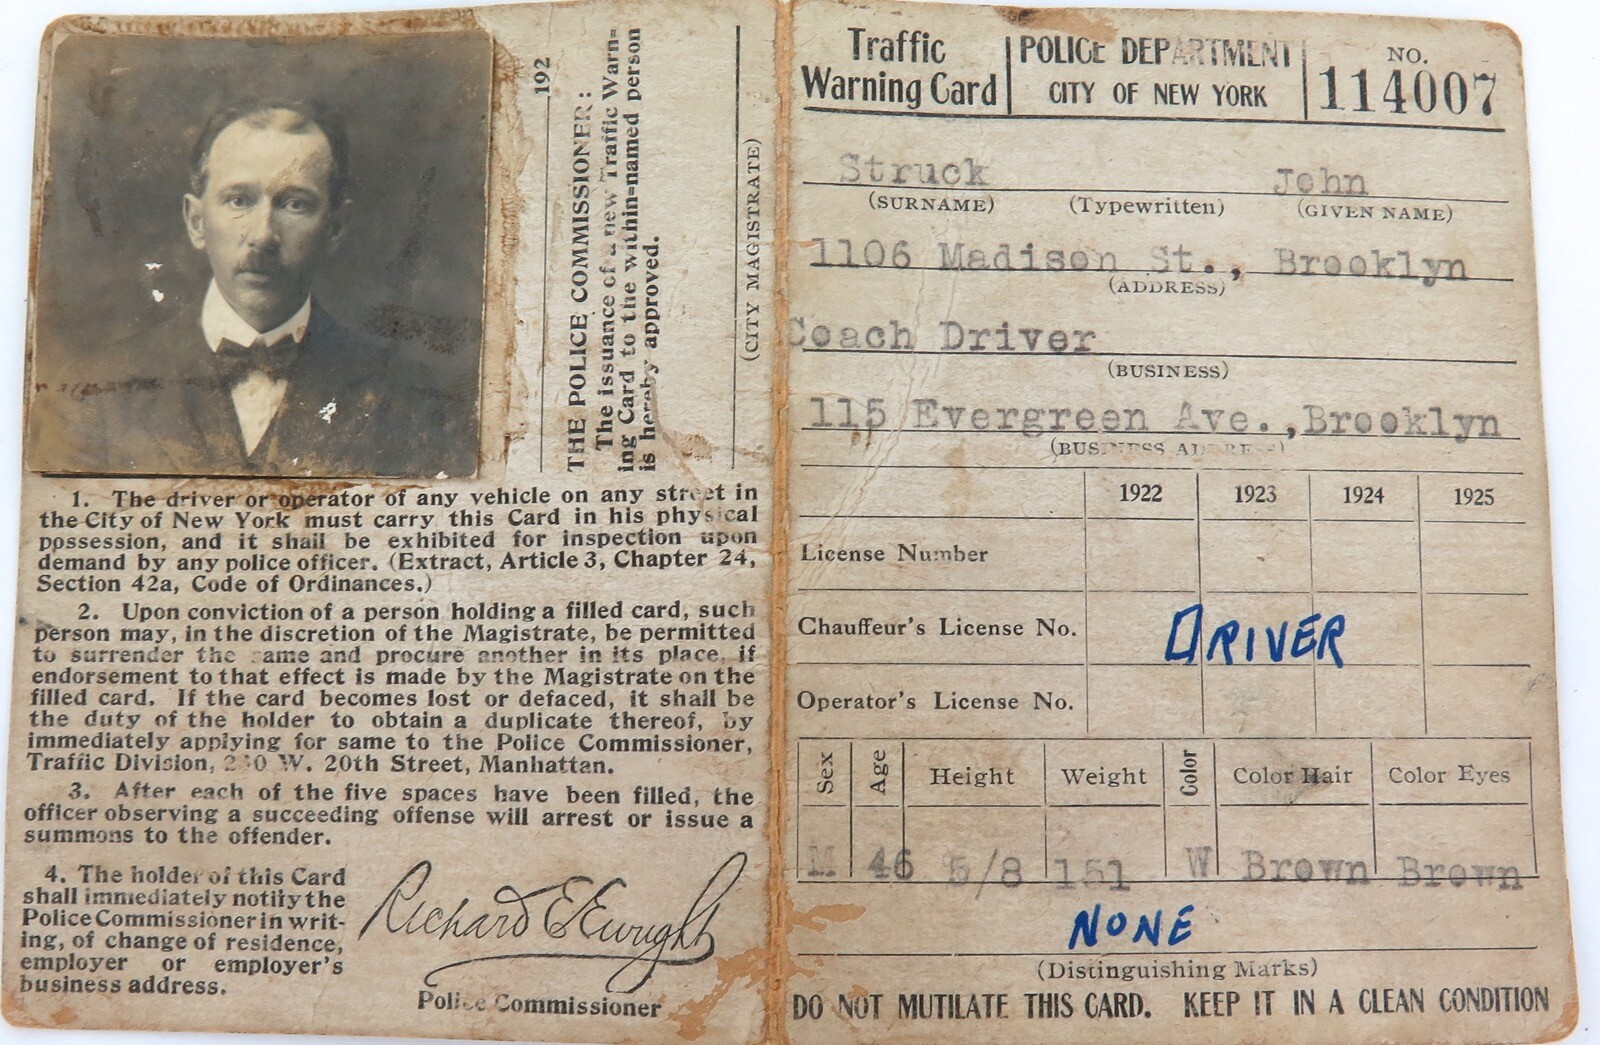 192
THE POLICE COMMISSIONER:
The issuance of a new Traffic Warn=
ing Card to the within=named person
is hereby approved.
(CITY MAGISTRATE)
1. The driver or operator of any vehicle on any street in
the City of New York must carry this Card in his physical
possession, and it shall be exhibited for inspection upon
demand by any police officer. (Extract, Article 3, Chapter 24,
Section 42a, Code of Ordinances.)
2. Upon conviction of a person holding a filled card, such
person may, in the discretion of the Magistrate, be permitted
to surrender the same and procure another in its place, if
endorsement to that effect is made by the Magistrate on the
filled card. If the card becomes lost or defaced, it shall be
the duty of the holder to obtain a duplicate thereof, by
immediately applying for same to the Police Commissioner,
Traffic Division, W. 20th Street, Manhattan.
3. After each of the five spaces have been filled, the
officer observing a succeeding offense will arrest or issue a
summons to the offender.
4. The holder of this Card
shall immediately notify the
Police Commissioner in writ-
ing, of change of residence,
employer or employer's
business address.
Richard E Enright
Police Commissioner
Traffic
Warning Card
POLICE DEPARTMENT
CITY OF NEW YORK
NO.
114007
Struck John
(SURNAME) (Typewritten) (GIVEN NAME)
1106 Madison St., Brooklyn
(ADDRESS)
Coach Driver
(BUSINESS)
115 Evergreen Ave.,Brooklyn
(BUSINESS ADDRESS)
1922 1923 1924 1925
License Number
Chauffeur's License No. DRIVER
Operator's License No.
Sex Age Height Weight Color Color Hair Color Eyes
M 46 5/8 151 W Brown Brown
NONE
(Distinguishing Marks)
DO NOT MUTILATE THIS CARD. KEEP IT IN A CLEAN CONDITION